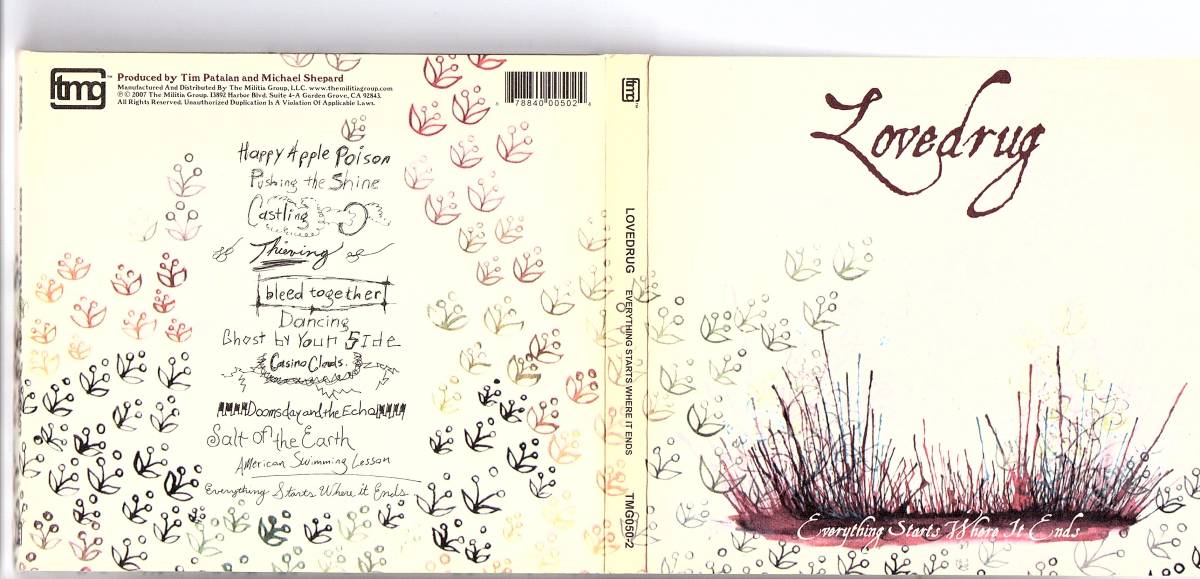 tmg
Produced by Tim Patalan and Michael Shepard
Manufactured And Distributed By The Militia Group, LLC. www.themilitiagroup.com
℗ © 2007 The Militia Group. 13892 Harbor Blvd. Suite 4-A Garden Grove, CA 92843.
All Rights Reserved. Unauthorized Duplication Is A Violation Of Applicable Laws.
6 78840 00502 4
Happy Apple Poison
Pushing the Shine
Castling
Thieving
bleed together
Dancing
Ghost by Your Side
Casino Clouds.
Doomsday and the Echo
Salt of the Earth
American Swimming Lesson
Everything Starts Where it Ends
tmg
LOVEDRUG EVERYTHING STARTS WHERE IT ENDS TMG050-2
Lovedrug
Everything Starts Where It Ends